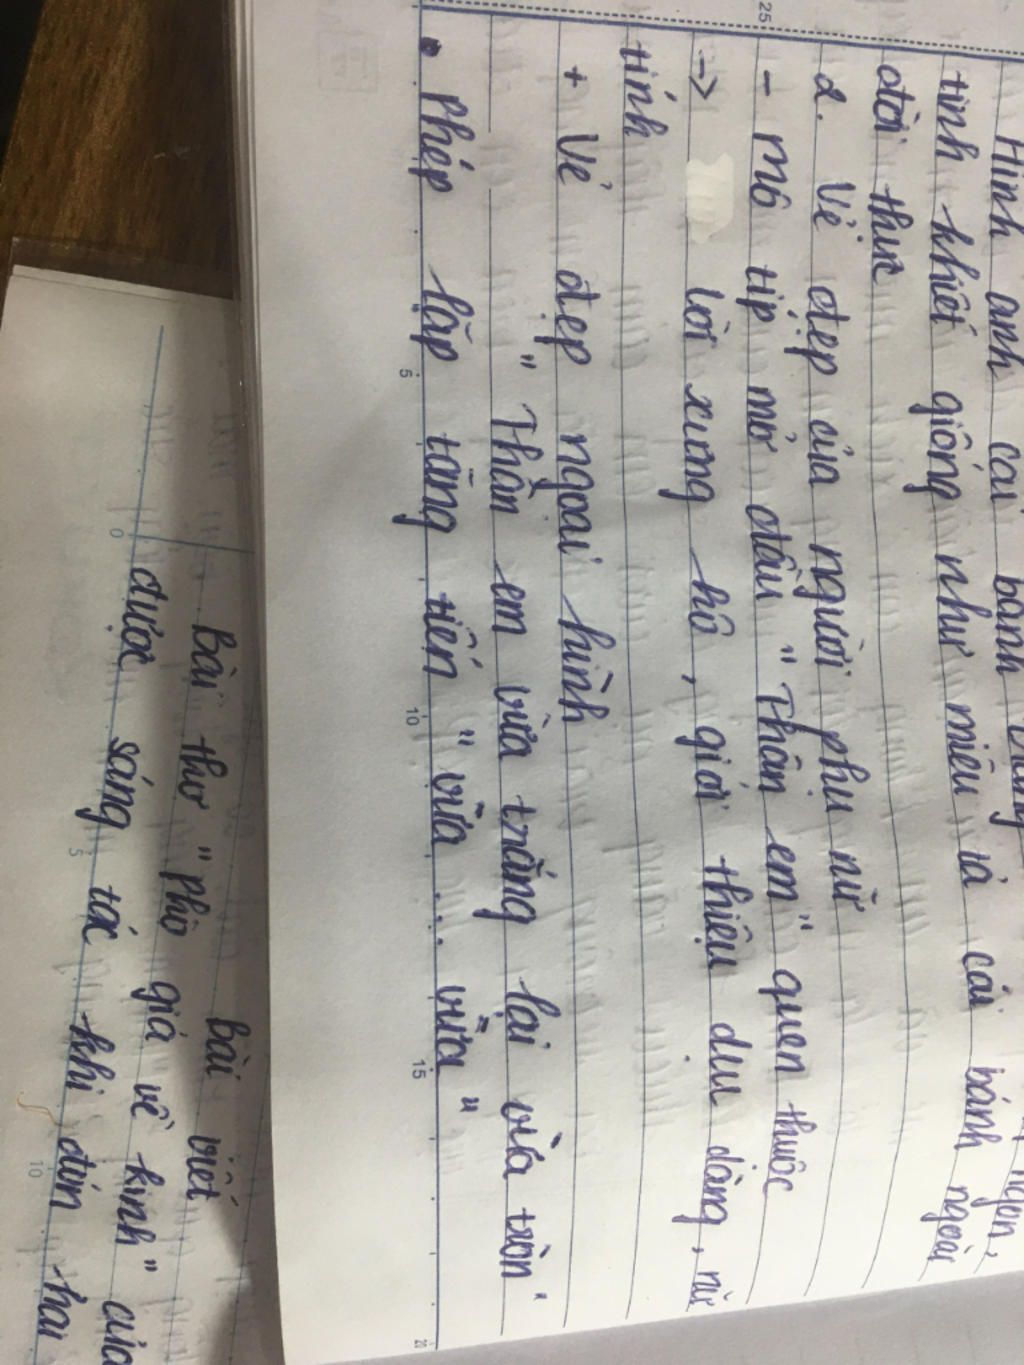 Hình ảnh cái bánh ngon,
tinh khiết giống như miêu tả cái bánh ngoài
đời thực
2. Vẻ đẹp của người phụ nữ
- mô típ mở đầu " Thân em " quen thuộc
-> lời xưng hô, giới thiệu dịu dàng, nữ
tính
+ Vẻ đẹp ngoại hình
" Thân em vừa trắng lại vừa tròn "
• Phép lặp tăng tiến " vừa ... vừa "
25
5
10
15
20
Bài viết
Bài thơ " Phò giá về kinh " của
được sáng tác khi đón hai
0
5
10